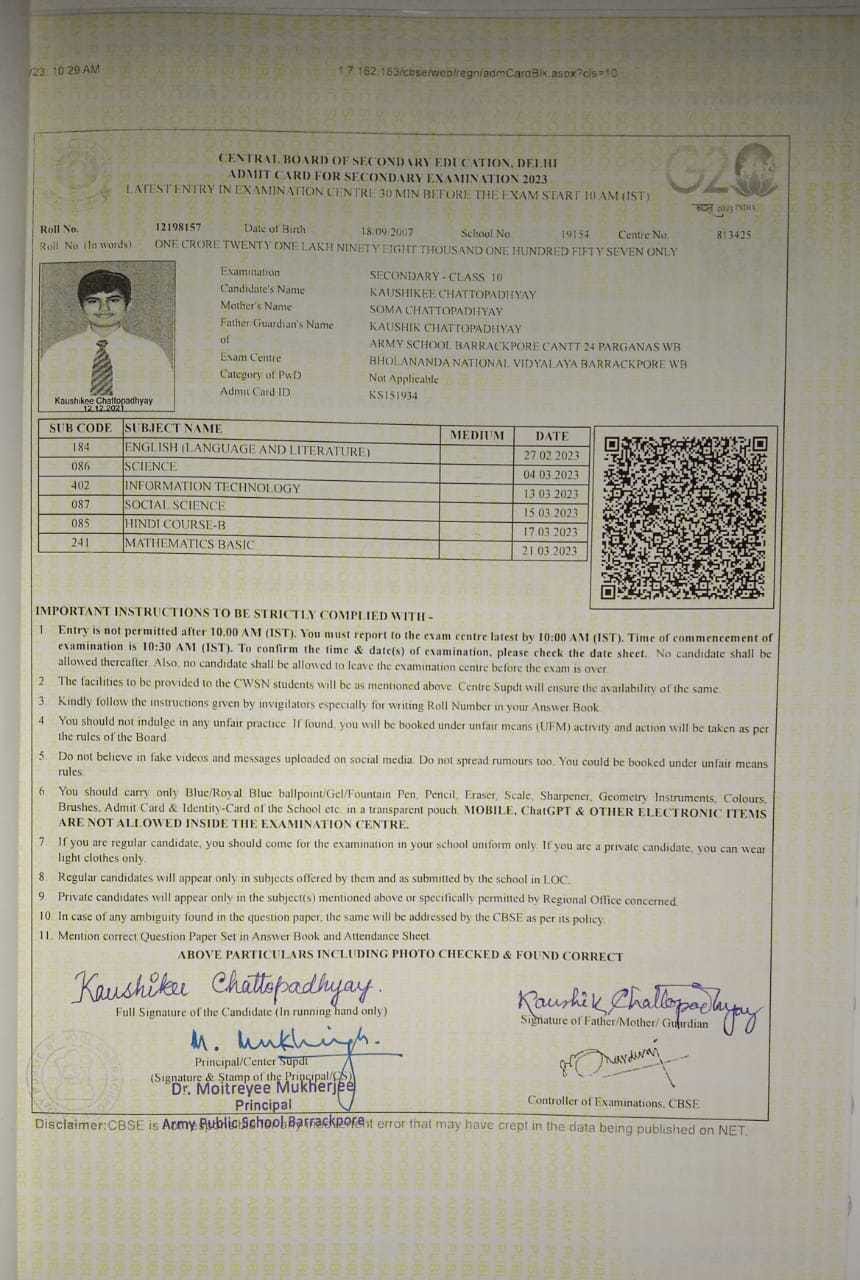 /23, 10:29 AM
1 7.162.163/cbse/web/regn/admCardBlk.aspx?cls=10
CENTRAL BOARD OF SECONDARY EDUCATION, DELHI
ADMIT CARD FOR SECONDARY EXAMINATION 2023
LATEST ENTRY IN EXAMINATION CENTRE 30 MIN BEFORE THE EXAM START 10 AM (IST)
G20
2023 INDIA
Roll No. 12198157 Date of Birth 18.09.2007 School No. 19154 Centre No. 813425
Roll No. (In words) ONE CRORE TWENTY ONE LAKH NINETY EIGHT THOUSAND ONE HUNDRED FIFTY SEVEN ONLY
Examination SECONDARY - CLASS 10
Candidate's Name KAUSHIKEE CHATTOPADHYAY
Mother's Name SOMA CHATTOPADHYAY
Father/Guardian's Name KAUSHIK CHATTOPADHYAY
of ARMY SCHOOL BARRACKPORE CANTT 24 PARGANAS WB
Exam Centre BHOLANANDA NATIONAL VIDYALAYA BARRACKPORE WB
Category of PwD Not Applicable
Admit Card ID KS151934
Kaushikee Chattopadhyay
12.12.2021
SUB CODE SUBJECT NAME MEDIUM DATE
184 ENGLISH (LANGUAGE AND LITERATURE) 27 02 2023
086 SCIENCE 04 03 2023
402 INFORMATION TECHNOLOGY 13 03 2023
087 SOCIAL SCIENCE 15 03 2023
085 HINDI COURSE-B 17 03 2023
241 MATHEMATICS BASIC 21 03 2023
IMPORTANT INSTRUCTIONS TO BE STRICTLY COMPLIED WITH -
1 Entry is not permitted after 10.00 AM (IST). You must report to the exam centre latest by 10:00 AM (IST). Time of commencement of
examination is 10:30 AM (IST). To confirm the time & date(s) of examination, please check the date sheet. No candidate shall be
allowed thereafter. Also, no candidate shall be allowed to leave the examination centre before the exam is over.
2. The facilities to be provided to the CWSN students will be as mentioned above. Centre Supdt will ensure the availability of the same.
3. Kindly follow the instructions given by invigilators especially for writing Roll Number in your Answer Book.
4 You should not indulge in any unfair practice. If found, you will be booked under unfair means (UFM) activity and action will be taken as per
the rules of the Board.
5. Do not believe in fake videos and messages uploaded on social media. Do not spread rumours too. You could be booked under unfair means
rules.
6. You should carry only Blue/Royal Blue ballpoint/Gel/Fountain Pen, Pencil, Eraser, Scale, Sharpener, Geometry Instruments, Colours,
Brushes, Admit Card & Identity-Card of the School etc. in a transparent pouch. MOBILE, ChatGPT & OTHER ELECTRONIC ITEMS
ARE NOT ALLOWED INSIDE THE EXAMINATION CENTRE.
7 If you are regular candidate, you should come for the examination in your school uniform only. If you are a private candidate, you can wear
light clothes only.
8. Regular candidates will appear only in subjects offered by them and as submitted by the school in LOC.
9 Private candidates will appear only in the subject(s) mentioned above or specifically permitted by Regional Office concerned.
10. In case of any ambiguity found in the question paper, the same will be addressed by the CBSE as per its policy.
11. Mention correct Question Paper Set in Answer Book and Attendance Sheet.
ABOVE PARTICULARS INCLUDING PHOTO CHECKED & FOUND CORRECT
Kaushikee Chattopadhyay.
Kaushik Chattopadhyay
Full Signature of the Candidate (In running hand only)
Signature of Father/Mother/ Guardian
Principal/Center Supdt
(Signature & Stamp of the Principal/CS)
Dr. Moitreyee Mukherjee
Principal
Army Public School Barrackpore
Controller of Examinations, CBSE
Disclaimer:CBSE is error that may have crept in the data being published on NET.